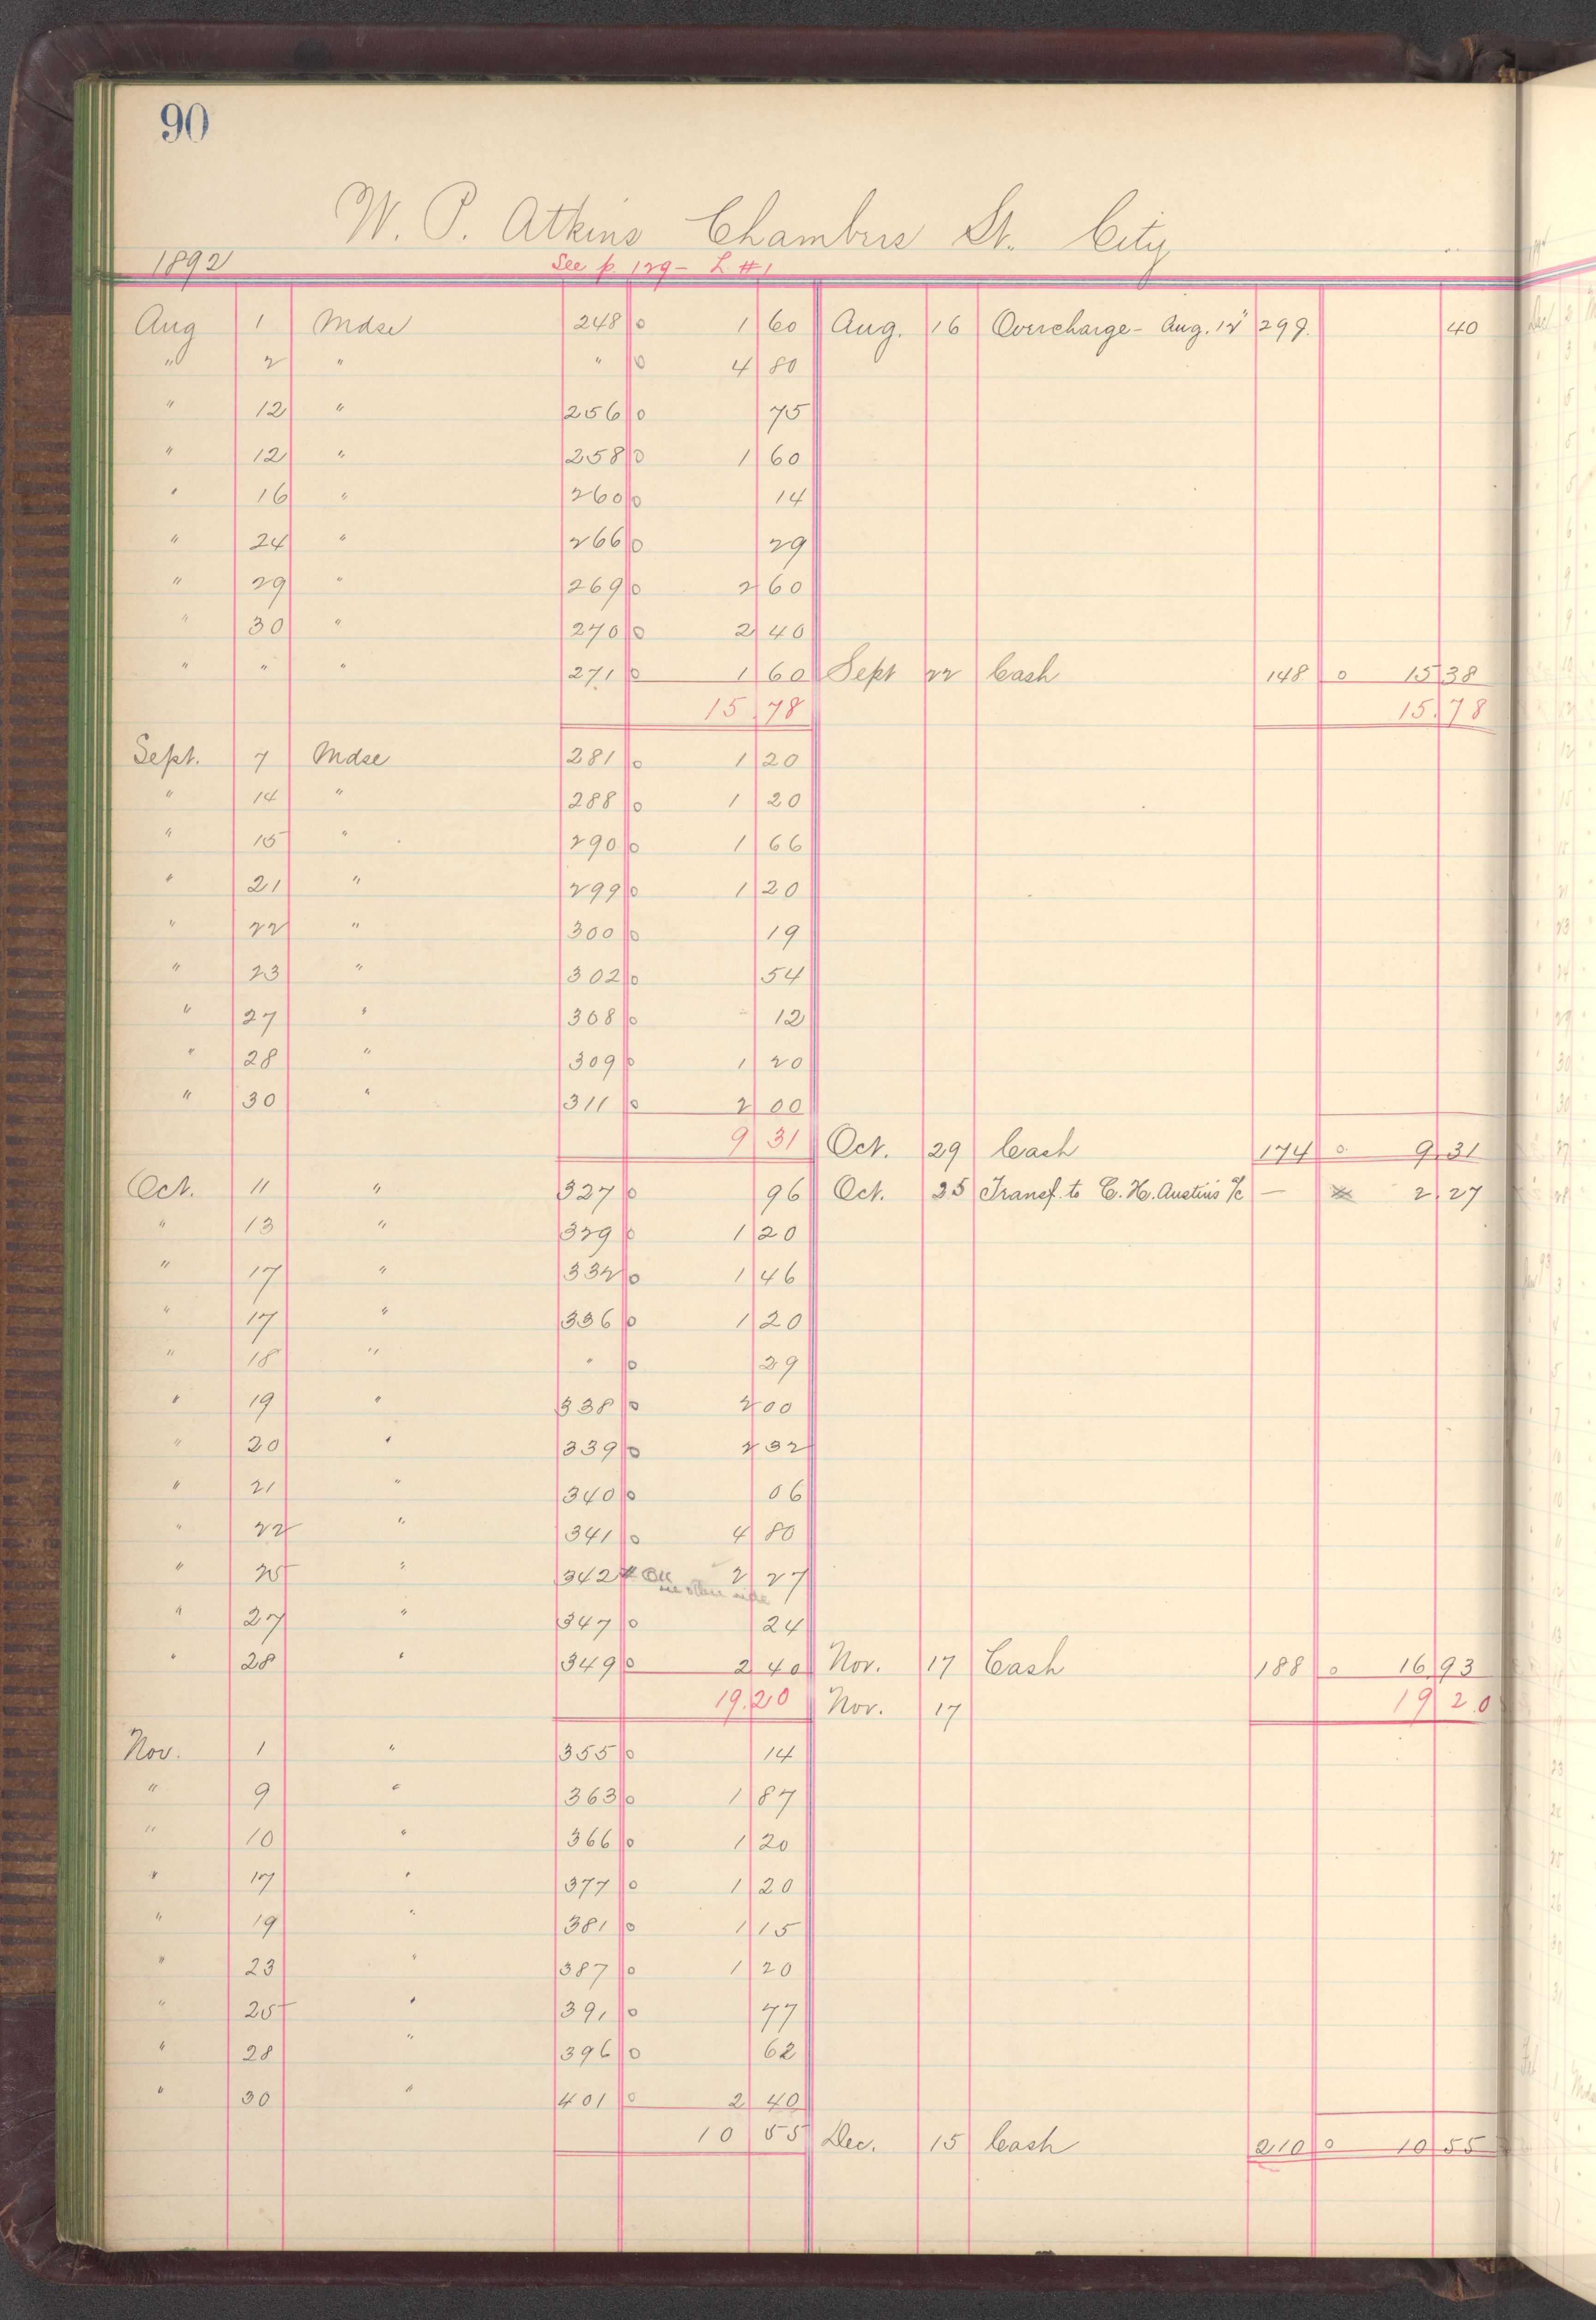 90
W. P. Atkins Chambers St. City
1892 See p. 129 - L #1
Aug 1 Mdse 248 0 1 60 Aug. 16 Overcharge - Aug. 12" 299. 40
" 2 " " 0 4 80
" 12 " 256 0 75
" 12 " 258 0 1 60
" 16 " 260 0 14
" 24 " 266 0 29
" 29 " 269 0 2 60
" 30 " 270 0 2 40
" " " 271 0 1 60 Sept 22 Cash 148 0 15 38
15.78 15.78
Sept. 7 Mdse 281 0 1 20
" 14 " 288 0 1 20
" 15 " 290 0 1 66
" 21 " 299 0 1 20
" 22 " 300 0 19
" 23 " 302 0 54
" 27 " 308 0 12
" 28 " 309 0 1 20
" 30 " 311 0 2 00
9 31 Oct. 29 Cash 174 0 9 31
Oct. 11 " 327 0 96 Oct. 25 Transf. to C. H. Austin's a/c — 2.27
" 13 " 329 0 1 20
" 17 " 332 0 1 46
" 17 " 336 0 1 20
" 18 " " 0 29
" 19 " 338 0 2 00
" 20 " 339 0 2 32
" 21 " 340 0 06
" 22 " 341 0 4 80
" 25 " 342 2 27
see other side
" 27 " 347 0 24
" 28 " 349 0 2 40 Nov. 17 Cash 188 0 16 93
19.20 Nov. 17 19 20
Nov. 1 " 355 0 14
" 9 " 363 0 1 87
" 10 " 366 0 1 20
" 17 " 377 0 1 20
" 19 " 381 0 1 15
" 23 " 387 0 1 20
" 25 " 391 0 77
" 28 " 396 0 62
" 30 " 401 0 2 40
10 55 Dec. 15 Cash 210 0 10 55